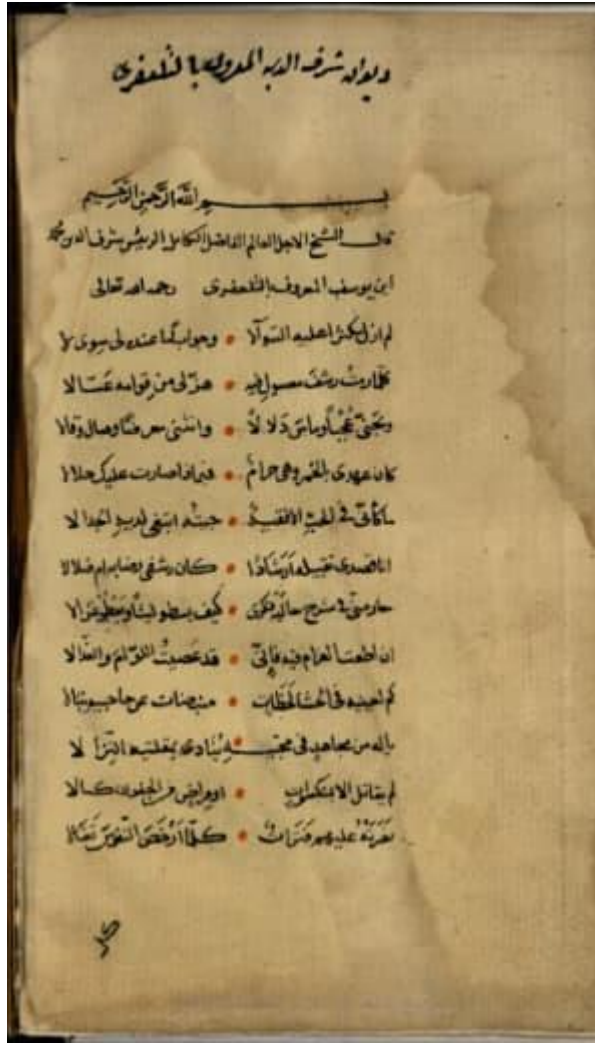 ديوان شرف الدين المعروف بالتلعفرى
بسم الله الرحمن الرحيم
قال الشيخ الاجل العالم الفاضل الكامل الرئيس شرف الدين محمد
ابن يوسف المعروف بالتلعفرى رحمه الله تعالى
لم ازل مكثرا عليه السوآلا وجواب لما عنده لى سوى لا
كلما رمت رشف معسول فيه هز لى من قوامه عسالا
وتجنى عُجْباً وماس دَلالاً وانثنى معرضا وصال وقالا
كان عهدى بالخمر وهى حرام فبماذا صارت عليك حلالا
ما كأنى فى الحب الا فقيه جيته ابتغى لديه الجدالا
انا قصدى تقبيله ارشادًا كان رشفى رضابه ام ضلالا
حار منى فى شرح حاليه فكرى كيف يسطو ليثا ويعطو غزالا
ان اطعت الغرام فيه فإنى قد عصيت اللوّام والعذالا
كم لعينيه فى الحشا لحظات منبضات عن حاجبيه نبالا
ياله من مجاهد فى محبيه ينادى بمقلتيه النزا لا
لم يقاتل الا بمكسرات او مراض من الجفون كسالا
كلما ارخص النفوس تغالا